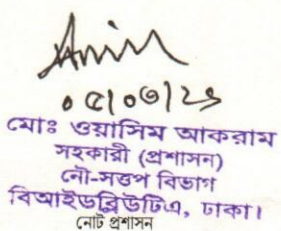 ০৫/০৩/২৯
মোঃ ওয়াসিম আকরাম
সহকারী (প্রশাসন)
নৌ-সওপ বিভাগ
বিআইডব্লিউটিএ, ঢাকা।
নোট প্রশাসন